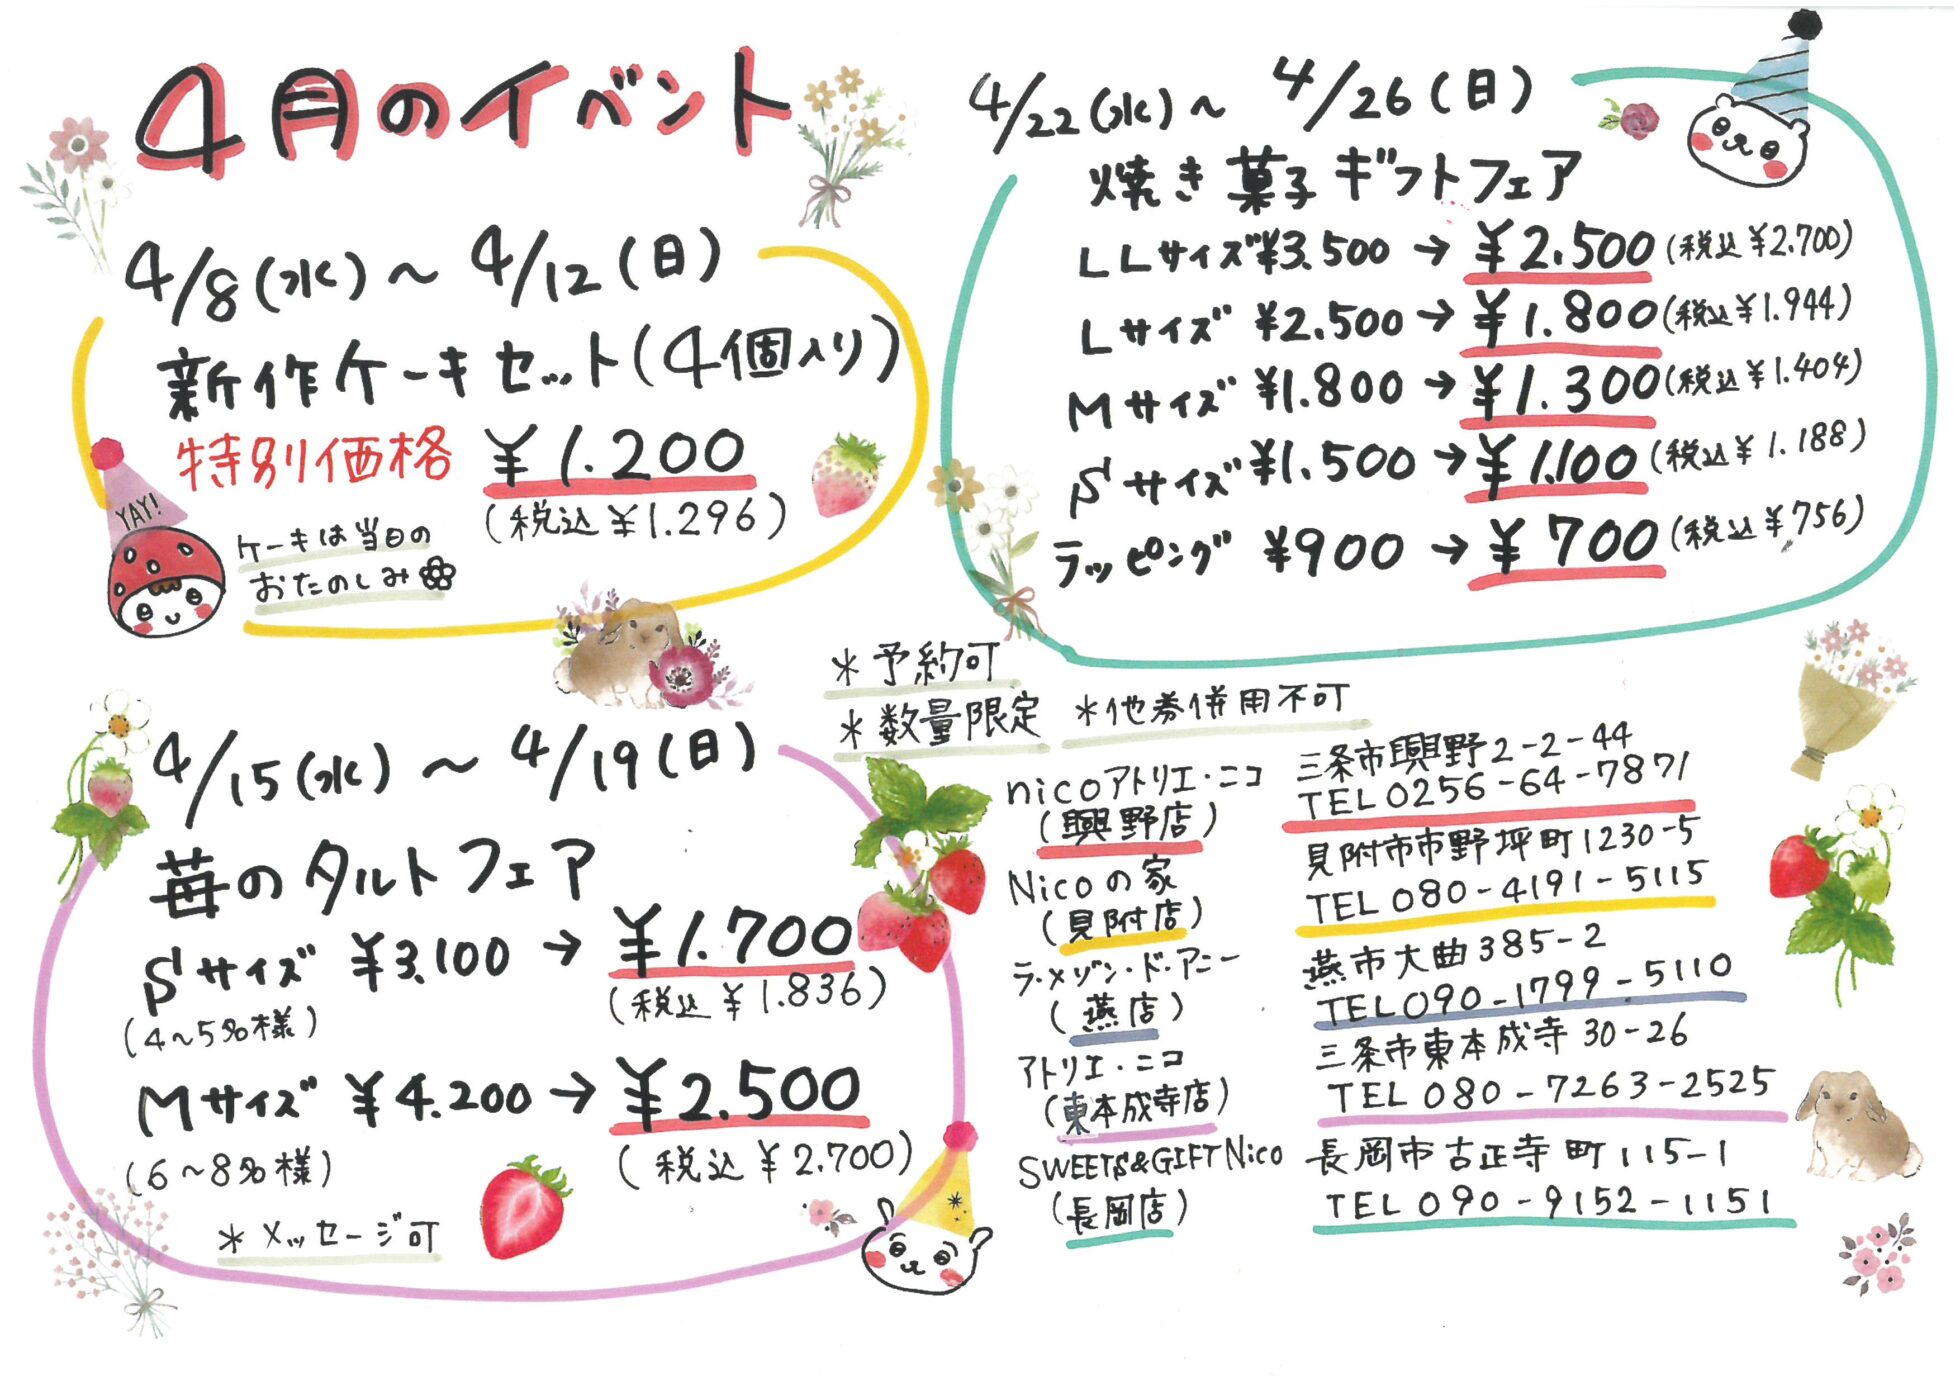 4月のイベント
4/8(水)～4/12(日)
新作ケーキセット(4個入り)
特別価格 ¥1.200
(税込¥1.296)
YAY!
ケーキは当日の
おたのしみ
4/15(水)～4/19(日)
苺のタルトフェア
Sサイズ ¥3.100→¥1.700
(4～5名様) (税込¥1.836)
Mサイズ ¥4.200→¥2.500
(6～8名様) (税込¥2.700)
*メッセージ可
4/22(水)～4/26(日)
焼き菓子ギフトフェア
LLサイズ¥3.500→¥2.500(税込¥2.700)
Lサイズ ¥2.500→¥1.800(税込¥1.944)
Mサイズ ¥1.800→¥1.300(税込¥1.404)
Sサイズ¥1.500→¥1.100(税込¥1.188)
ラッピング ¥900→¥700(税込¥756)
*予約可
*数量限定 *他券併用不可
nicoアトリエ・ニコ
(興野店)
三条市興野2-2-44
TEL0256-64-7871
Nicoの家
(見附店)
見附市市野坪町1230-5
TEL080-4191-5115
ラ・メゾン・ド・アニー
(燕店)
燕市大曲385-2
TEL090-1799-5110
アトリエ・ニコ
(東本成寺店)
三条市東本成寺30-26
TEL080-7263-2525
SWEETS&GIFT Nico
(長岡店)
長岡市古正寺町115-1
TEL090-9152-1151